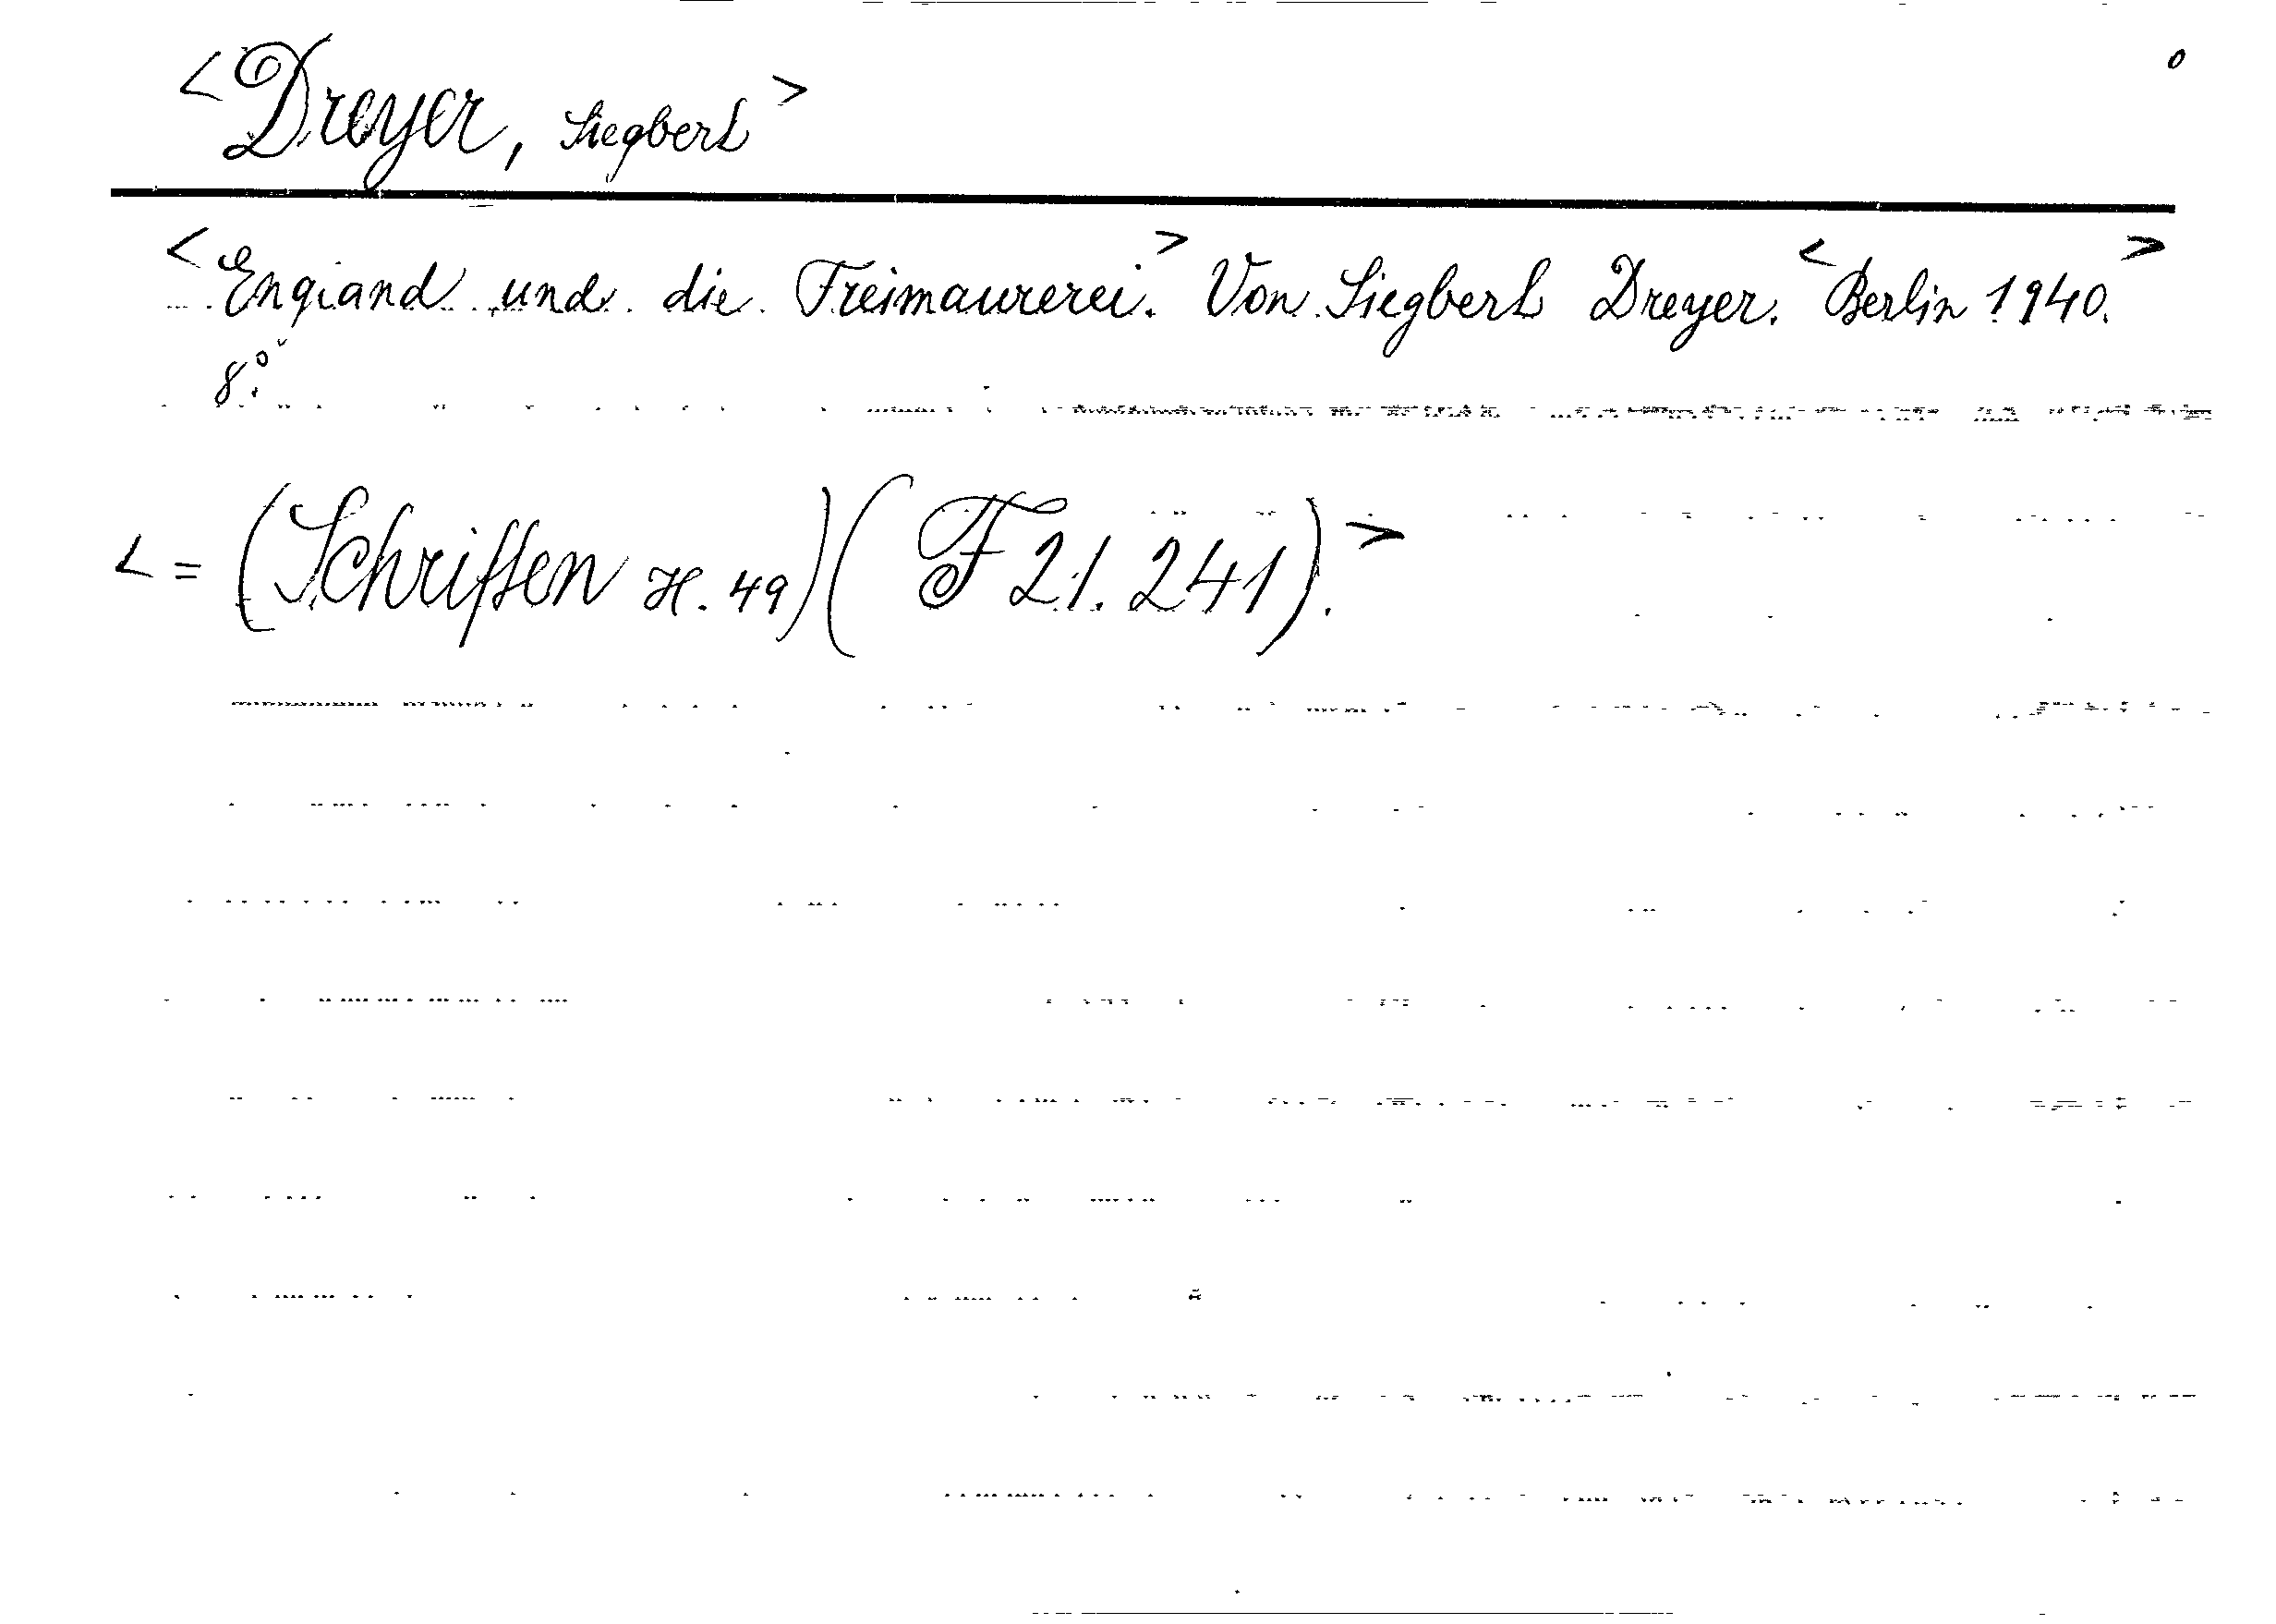 <Dreyer, Siegbert> o
<England und die Freimaurerei.> Von Siegbert Dreyer. <Berlin 1940.>
8°.
<= (Schriften H. 49) (F 21. 241).>